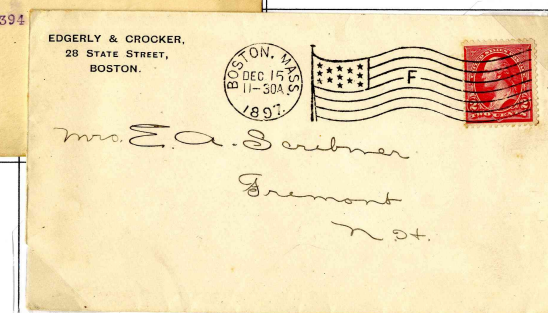 394
EDGERLY & CROCKER,
28 STATE STREET,
BOSTON.
BOSTON, MASS.
DEC 15
11-30A
1897.
F
Mrs. E. A. Scribner
Fremont
N. H.